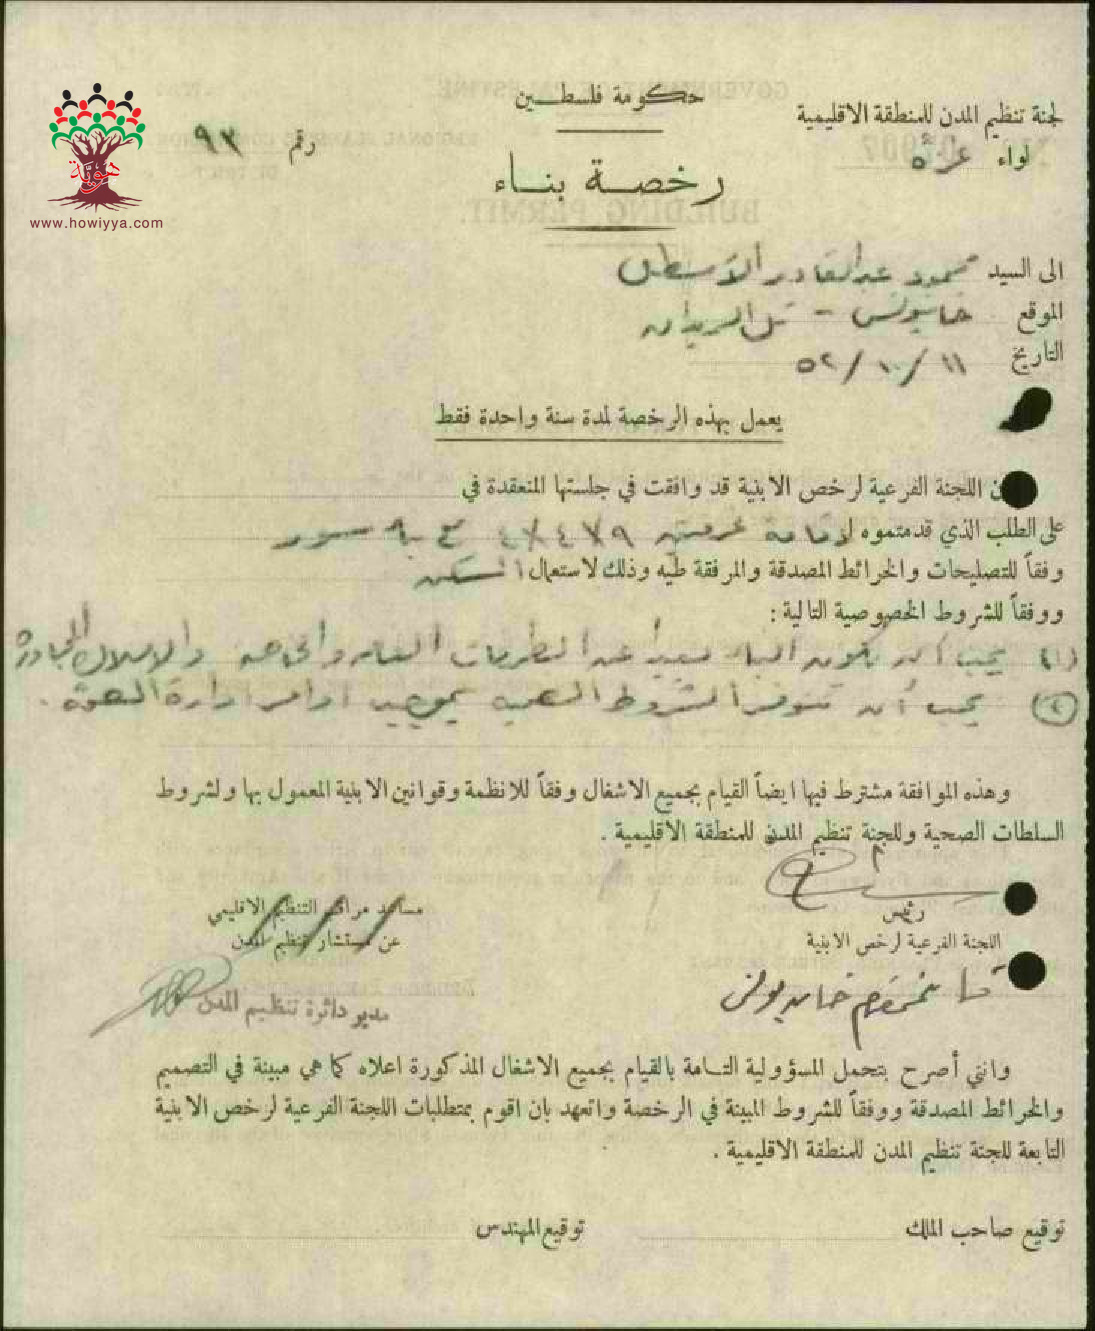 حكومة فلسطين
لجنة تنظيم المدن للمنطقة الاقليمية
لواء غزة
رقم ٩٣
هوية
www.howiyya.com
رخصة بناء
الى السيد محمود عبد القادر الأسطل
الموقع خانيونس - تل الريدان
التاريخ ١١ / ١٠ / ٥٢
يعمل بهذه الرخصة لمدة سنة واحدة فقط
ن اللجنة الفرعية لرخص الابنية قد وافقت في جلستها المنعقدة في
على الطلب الذي قدمتموه لاقامة غرفتين مع سور
وفقاً للتصليحات والخرائط المصدقة والمرفقة طيه وذلك لاستعمال السكن
ووفقاً للشروط الخصوصية التالية :
(١) يجب أن يكون البناء بعيداً عن الطرقات العامه والخاصه والاملاك المجاورة
(٢) يجب أن تتوفر الشروط الصحية بموجب اوامر ادارة الصحة .
وهذه الموافقة مشترط فيها ايضاً القيام بجميع الاشغال وفقاً للانظمة وقوانين الابنية المعمول بها ولشروط
السلطات الصحية وللجنة تنظيم المدن للمنطقة الاقليمية .
رئيس
اللجنة الفرعية لرخص الابنية
قائمقام خانيونس
مساعد مراقب التنظيم الاقليمي
عن مستشار تنظيم المدن
مدير دائرة تنظيم المدن
وانني أصرح بتحمل المسؤولية التامة بالقيام بجميع الاشغال المذكورة اعلاه كما هي مبينة في التصميم
والخرائط المصدقة ووفقاً للشروط المبينة في الرخصة واتعهد بان اقوم بمتطلبات اللجنة الفرعية لرخص الابنية
التابعة للجنة تنظيم المدن للمنطقة الاقليمية .
توقيع صاحب الملك
توقيع المهندس